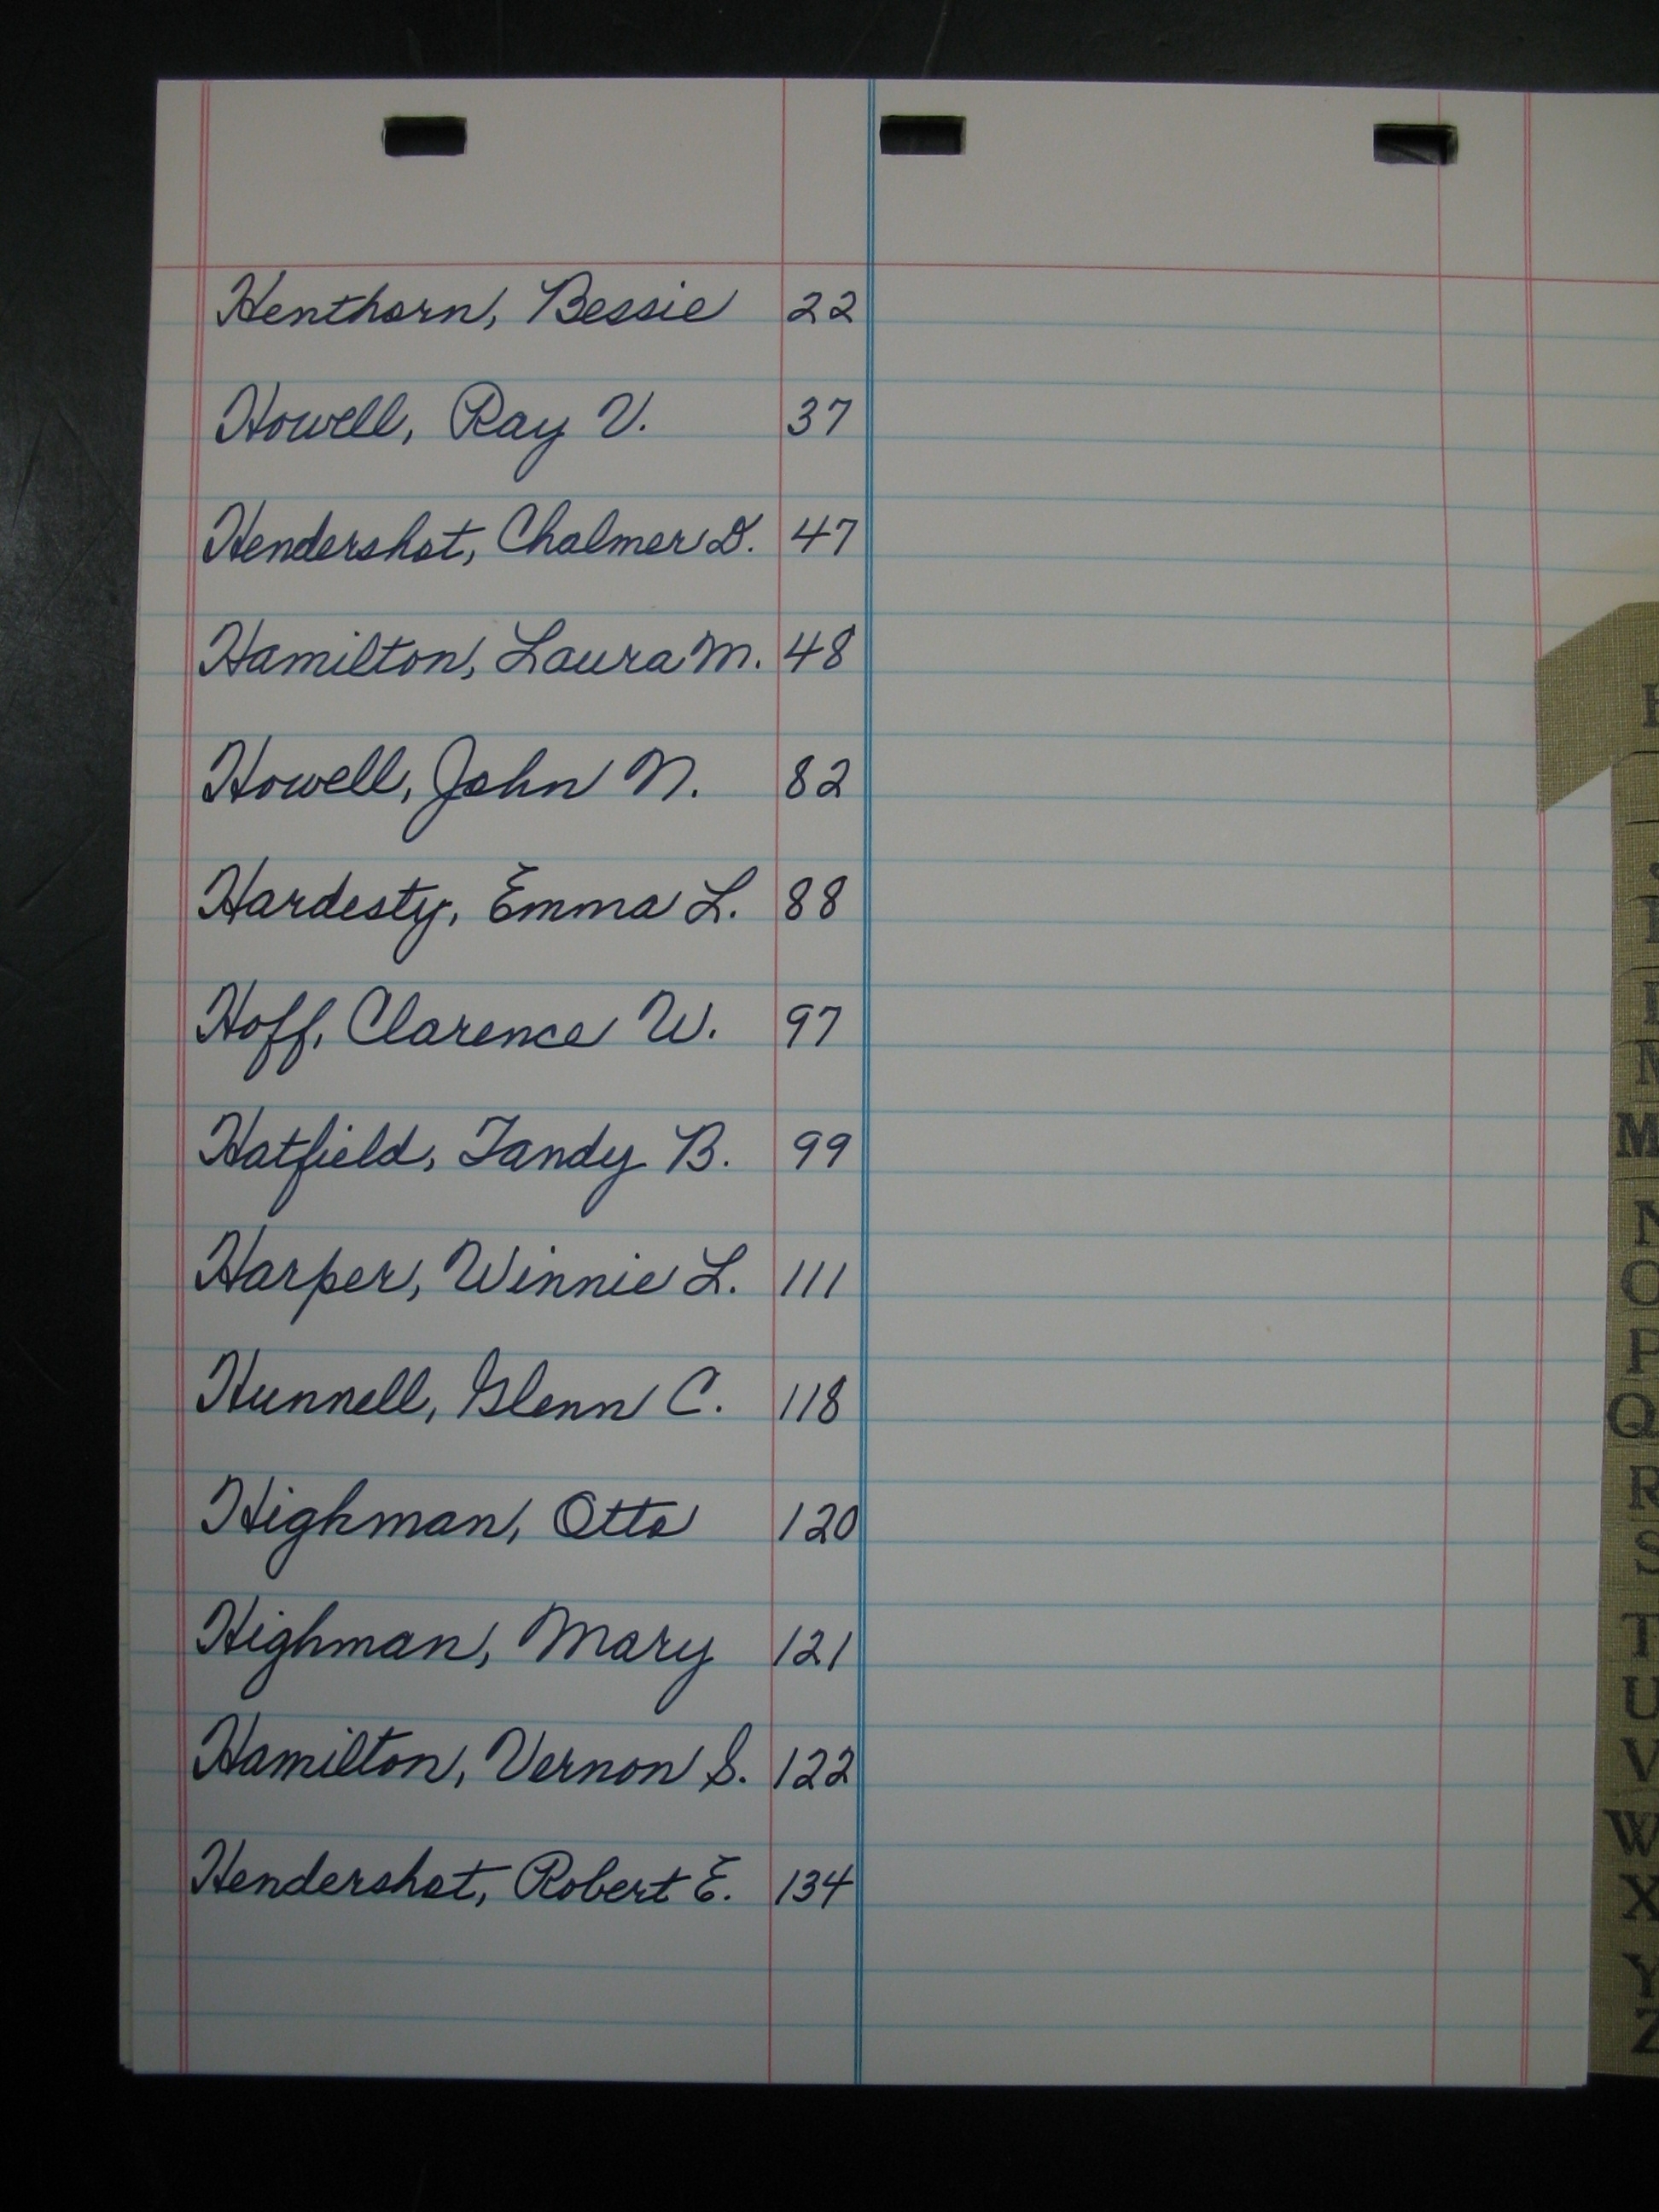 Henthorn, Bessie 22
Howell, Ray V. 37
Hendershot, Chalmer D. 47
Hamilton, Laura M. 48
Howell, John N. 82
Hardesty, Emma L. 88
Hoff, Clarence W. 97
Hatfield, Tandy B. 99
Harper, Winnie L. 111
Hunnell, Glenn C. 118
Highman, Otto 120
Highman, Mary 121
Hamilton, Vernon S. 122
Hendershot, Robert E. 134
M
N
O
P
Q
R
S
T
U
V
W
X
Y
Z